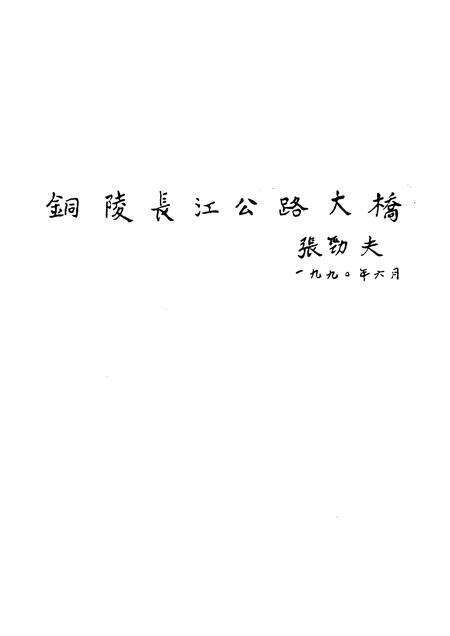 銅陵長江公路大橋
張勁夫
一九九〇年六月